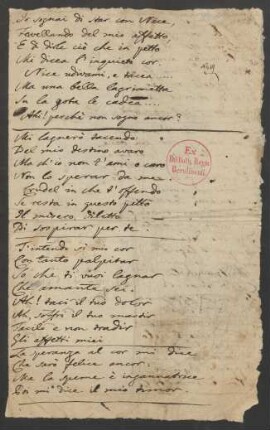 Io sognai di star con Nice,
Favellando del mio affetto
E di dile ciò che in petto
Mi dicea l'inquieto cor.
Nice udivami, e tacea....
Ma una bella lagrimetta
In la gota le cadea....
Ah! perché non sogno ancor?
Mi lagnerò tacendo
Del mio destino avaro
Ma ch'io non t'ami o cara
Non lo sperar da me
Crudel in che t'offendo
Se resta in questo petto
Il misero diletto
Di sospirar per te
T'intendo si mio cor
Con tanto palpitar
So che ti vuoi lagnar
Che amante sei.
Ah! taci il tuo dolor
Ah, soffri il tuo martir
Tacilo e non tradir
Gli affetti miei
La speranza al cor mi dice
Che sarò felice ancor.
Ma la speme è ingannatrice
Poi mi dice il mio timor
Ex
Biblioth. Regia
Berolinensi.